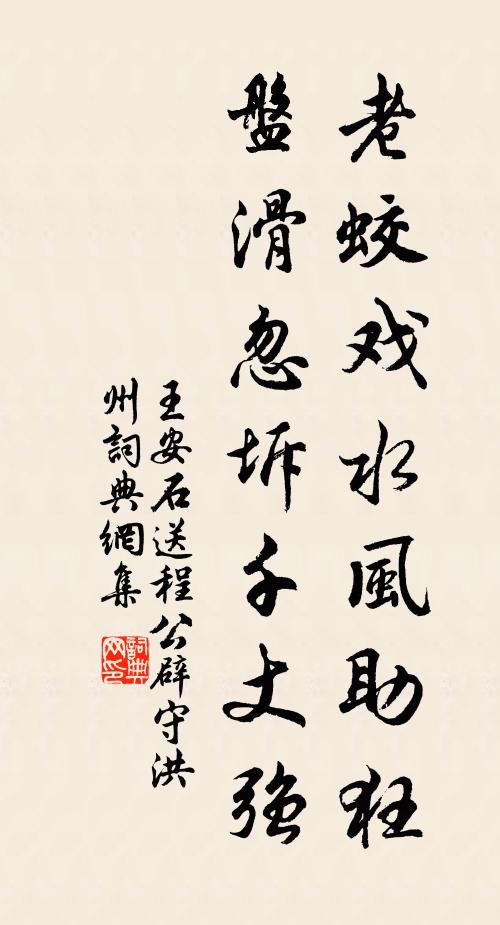 老蛟戏水風助狂
盤滑忽坼千丈強
王安石送程公辟守洪
州詞典網集
詞典網印